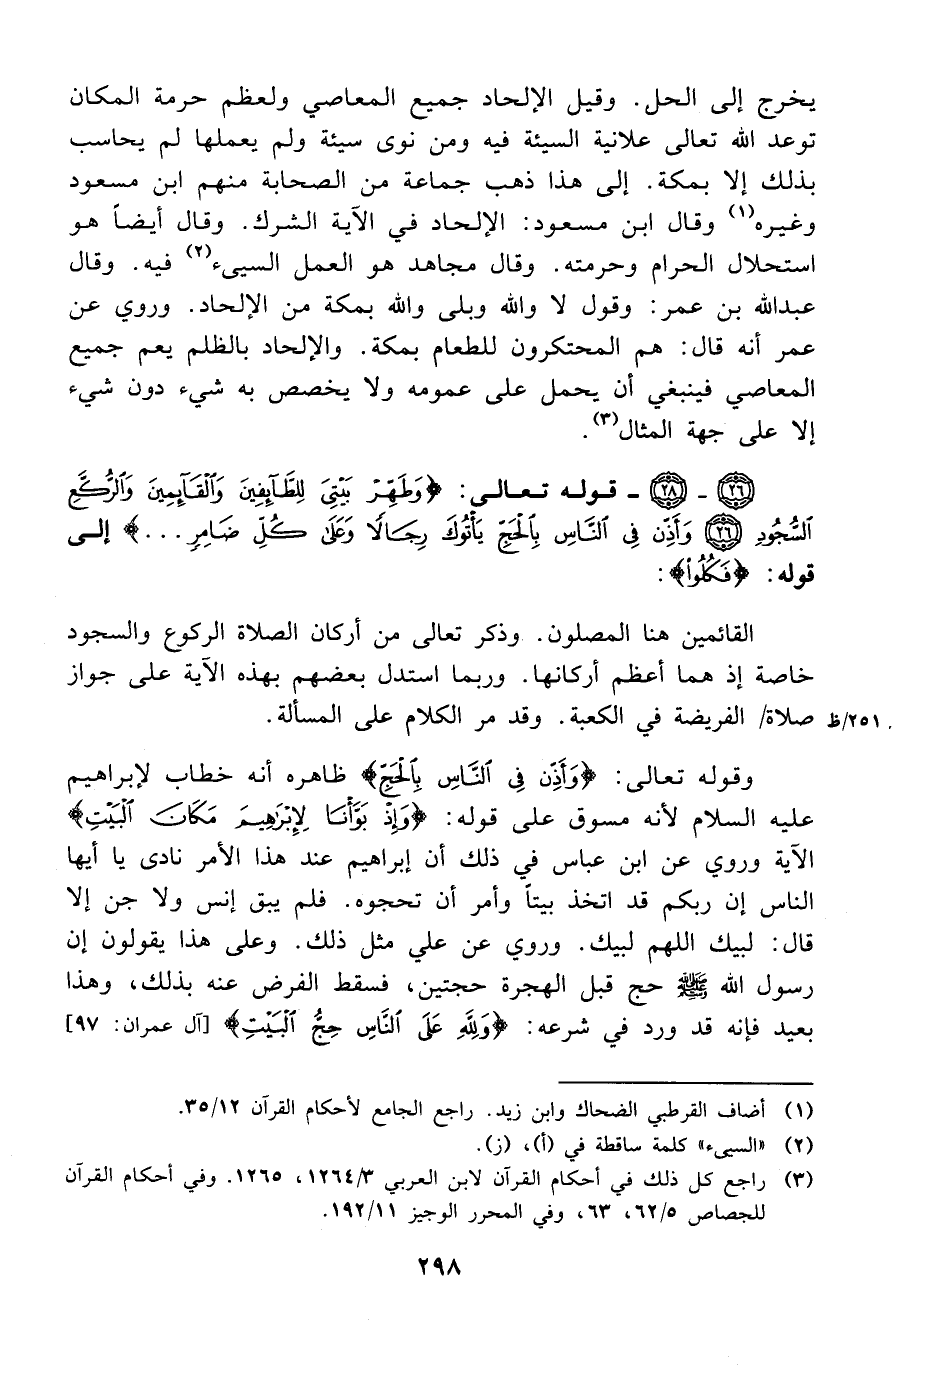 يخرج إلى الحل. وقيل الإلحاد جميع المعاصي ولعظم حرمة المكان
توعد الله تعالى علانية السيئة فيه ومن نوى سيئة ولم يعملها لم يحاسب
بذلك إلا بمكة. إلى هذا ذهب جماعة من الصحابة منهم ابن مسعود
وغيره(١) وقال ابن مسعود: الإلحاد في الآية الشرك. وقال أيضاً هو
استحلال الحرام وحرمته. وقال مجاهد هو العمل السيىء(٢) فيه. وقال
عبدالله بن عمر: وقول لا والله وبلى والله بمكة من الإلحاد. وروي عن
عمر أنه قال: هم المحتكرون للطعام بمكة. والإلحاد بالظلم يعم جميع
المعاصي فينبغي أن يحمل على عمومه ولا يخصص به شيء دون شيء
إلا على جهة المثال(٣).
(٢٦) - (٢٨) - قوله تعالى: ﴿وَطَهِّرْ بَيْتِيَ لِلطَّآئِفِينَ وَٱلْقَآئِمِينَ وَٱلرُّكَّعِ
ٱلسُّجُودِ (٢٦) وَأَذِّن فِى ٱلنَّاسِ بِٱلْحَجِّ يَأْتُوكَ رِجَالًا وَعَلَىٰ كُلِّ ضَامِرٍ ...﴾ إلى
قوله: ﴿فَكُلُوا۟﴾:
القائمين هنا المصلون. وذكر تعالى من أركان الصلاة الركوع والسجود
خاصة إذ هما أعظم أركانها. وربما استدل بعضهم بهذه الآية على جواز
٢٥١/ظ صلاة/ الفريضة في الكعبة. وقد مر الكلام على المسألة.
وقوله تعالى: ﴿وَأَذِّن فِى ٱلنَّاسِ بِٱلْحَجِّ﴾ ظاهره أنه خطاب لإبراهيم
عليه السلام لأنه مسوق على قوله: ﴿وَإِذْ بَوَّأْنَا لِإِبْرَٰهِيمَ مَكَانَ ٱلْبَيْتِ﴾
الآية وروي عن ابن عباس في ذلك أن إبراهيم عند هذا الأمر نادى يا أيها
الناس إن ربكم قد اتخذ بيتاً وأمر أن تحجوه. فلم يبق إنس ولا جن إلا
قال: لبيك اللهم لبيك. وروي عن علي مثل ذلك. وعلى هذا يقولون إن
رسول الله ﷺ حج قبل الهجرة حجتين، فسقط الفرض عنه بذلك، وهذا
بعيد فإنه قد ورد في شرعه: ﴿وَلِلَّهِ عَلَى ٱلنَّاسِ حِجُّ ٱلْبَيْتِ﴾ [آل عمران: ٩٧]
(١) أضاف القرطبي الضحاك وابن زيد. راجع الجامع لأحكام القرآن ٣٥/١٢.
(٢) «السيىء» كلمة ساقطة في (أ)، (ز).
(٣) راجع كل ذلك في أحكام القرآن لابن العربي ١٢٦٤/٣، ١٢٦٥. وفي أحكام القرآن
للجصاص ٦٢/٥، ٦٣، وفي المحرر الوجيز ١٩٢/١١.
٢٩٨